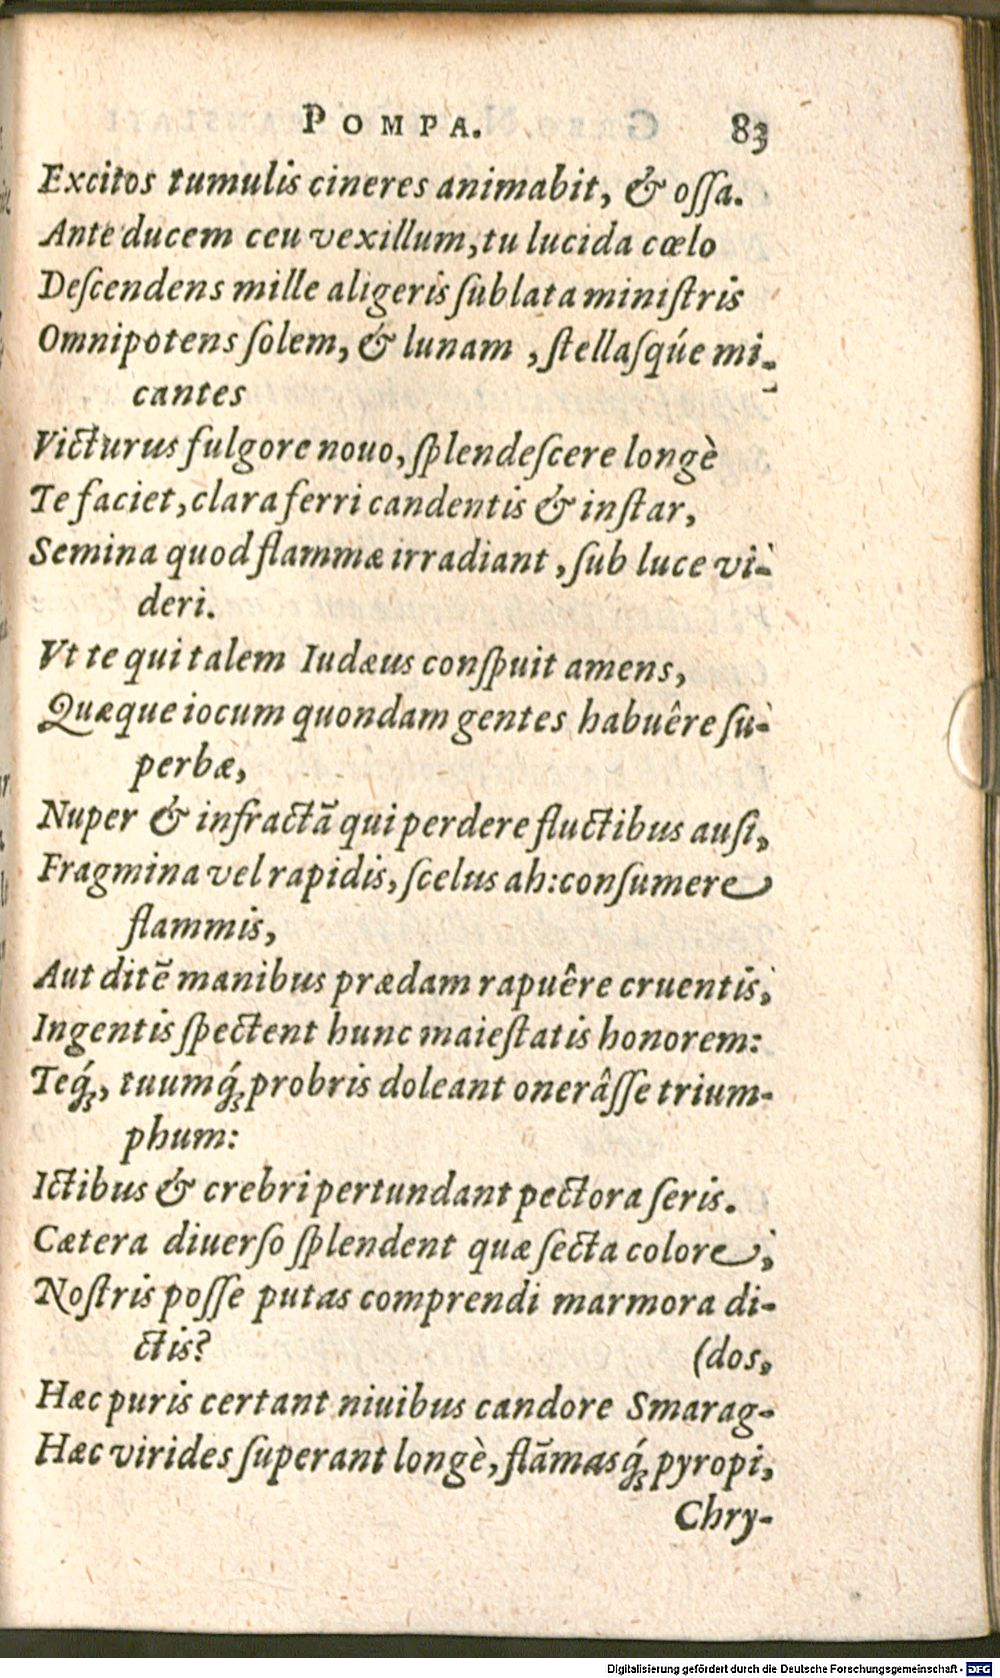 POMPA. 83
Excitos tumulis cineres animabit, & oſſa.
Ante ducem ceu vexillum, tu lucida cœlo
Deſcendens mille aligeris ſublata miniſtris
Omnipotens ſolem, & lunam , ſtellaſqúe mi-
cantes
Victurus fulgore nouo, ſplendeſcere longè
Te faciet, clara ferri candentis & inſtar,
Semina quod flammæ irradiant, ſub luce vi-
deri.
Vt te qui talem Iudæus conſpuit amens,
Quæque iocum quondam gentes habuêre ſu-
perbæ,
Nuper & infractā qui perdere fluctibus auſi,
Fragmina vel rapidis, ſcelus ah: conſumere
flammis,
Aut ditē manibus prædam rapuêre cruentis,
Ingentis ſpectent hunc maieſtatis honorem:
Teq́;, tuumq́; probris doleant onerâſſe trium-
phum:
Ictibus & crebri pertundant pectora ſeris.
Cætera diuerſo ſplendent quæ ſecta colore,
Noſtris poſſe putas comprendi marmora di-
ctis? (dos,
Hæc puris certant niuibus candore Smarag-
Hæc virides ſuperant longè, flāmasq́; pyropi,
Chry-
Digitalisierung gefördert durch die Deutsche Forschungsgemeinschaft - DFG